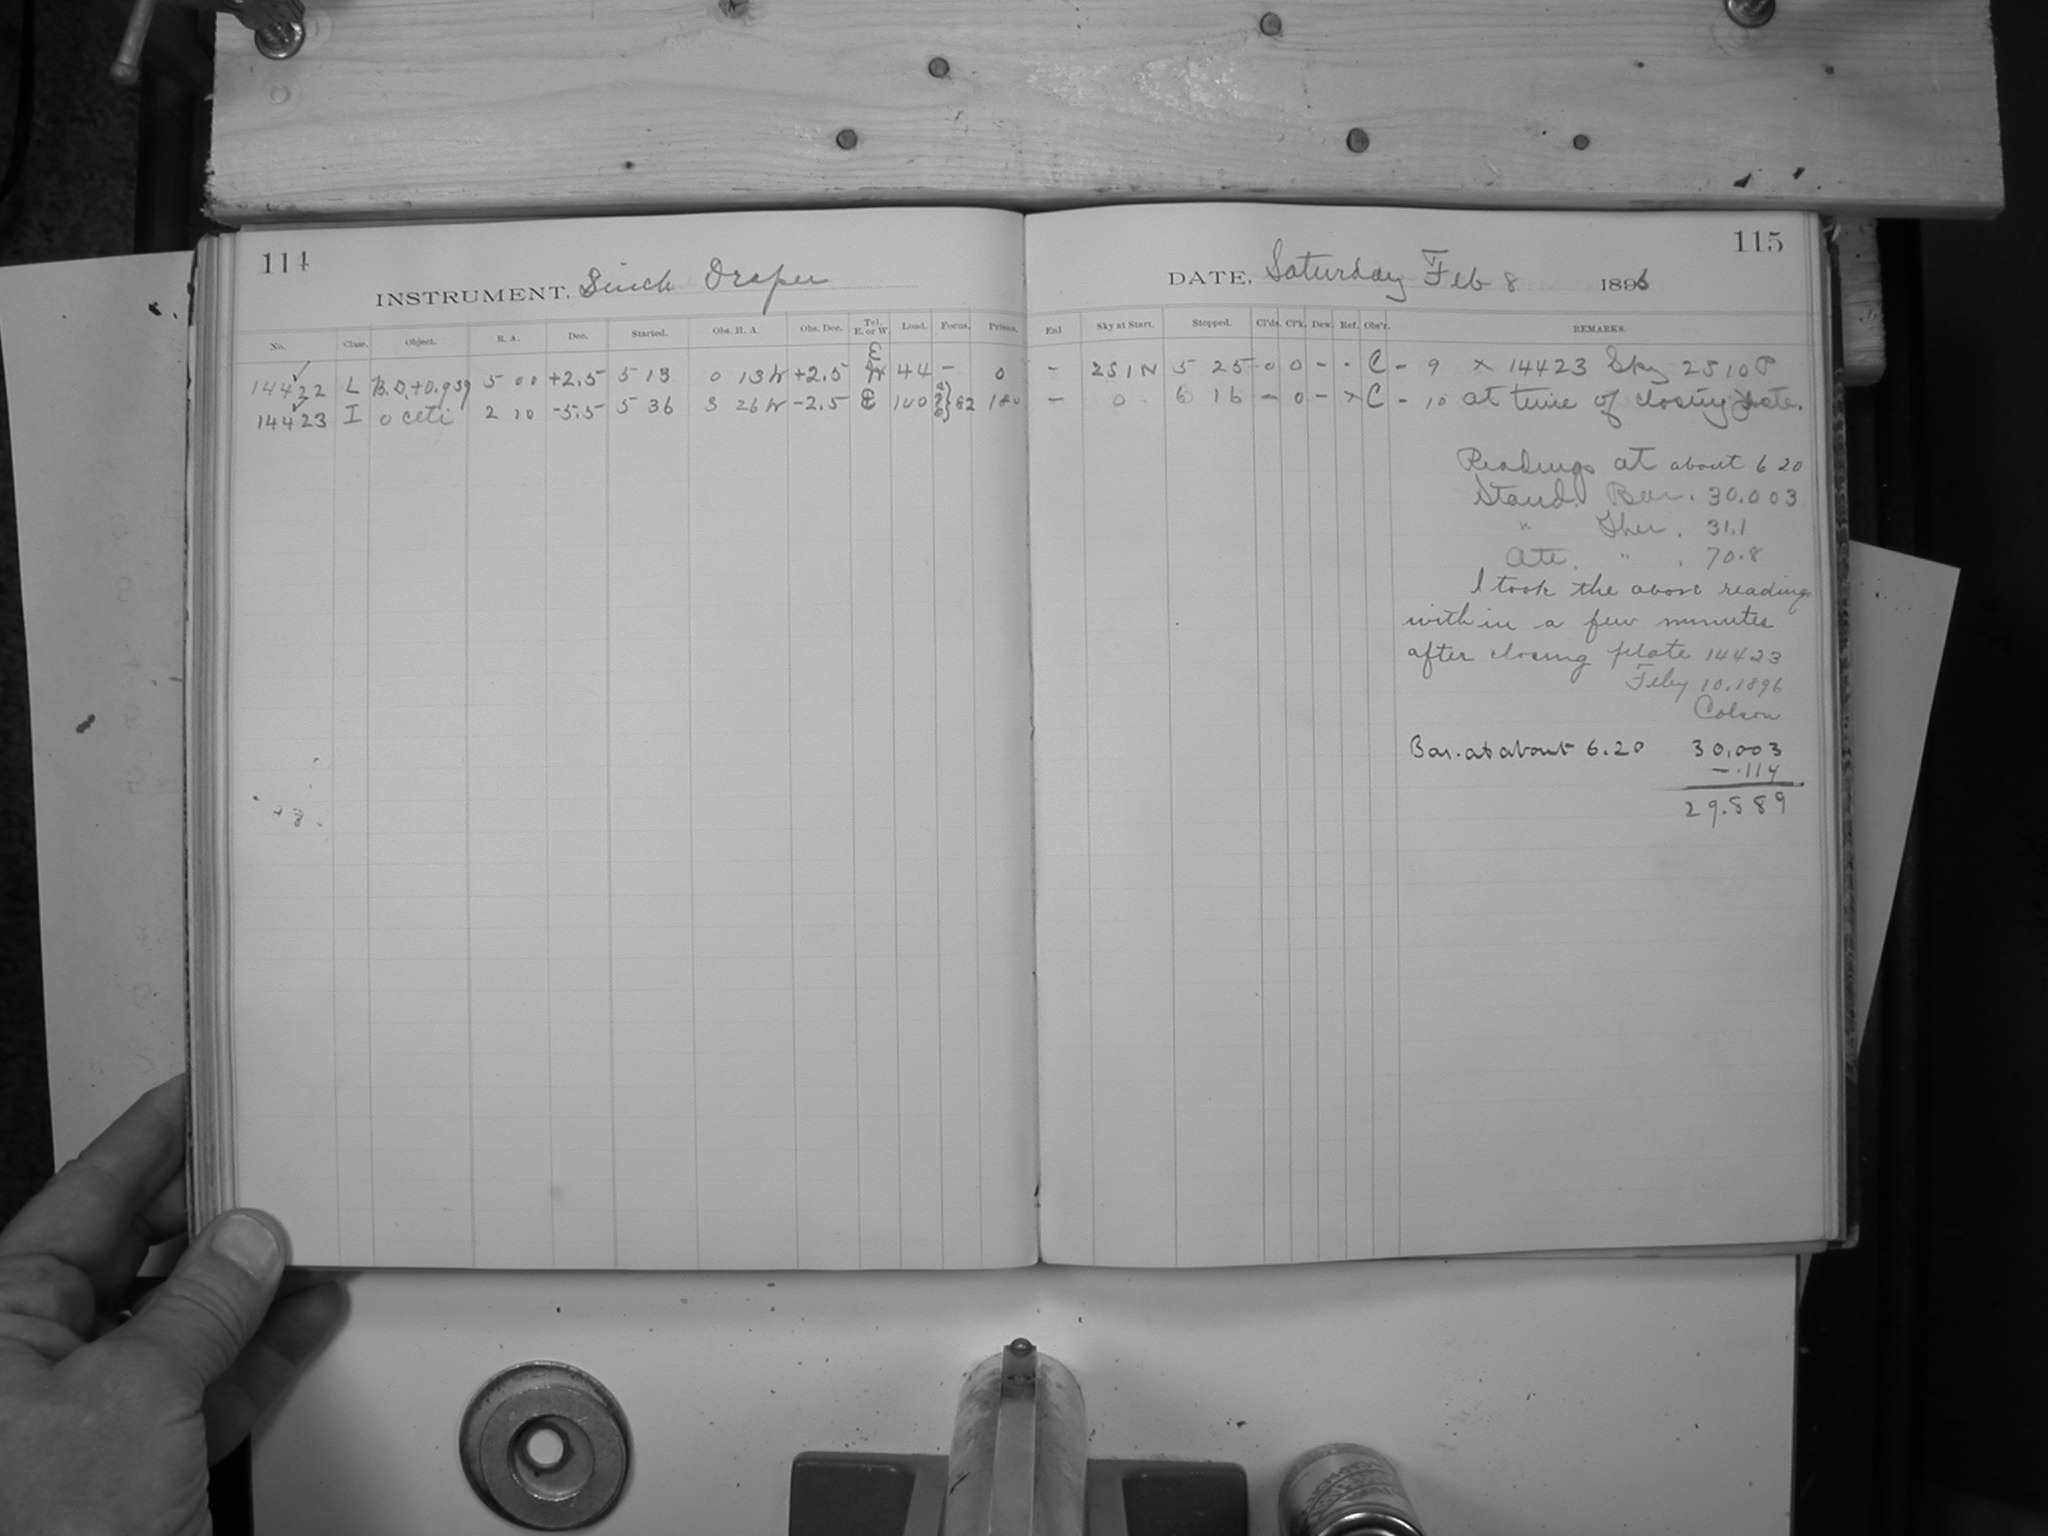 114
INSTRUMENT. 8 inch Draper
No. Class. Object. R. A. Dec. Started. Obs. H. A. Obs. Dec. Tel. E. or W. Load. Focus. Prisms.
14422 L B.D.+0.939 5 00 +2.5 5 13 0 13 W +2.5 E 44 - 0
14423 I o Ceti 2 10 -5.5 5 36 3 26 W -2.5 E 100 82 180
115
DATE, Saturday Feb 8 1896
Enl Sky at Start. Stopped. Cl'ds. Cl'k. Dew. Ref. Obs'r. REMARKS.
- 251N 5 25 0 0 - - C - 9 x 14423 Sky 2510P
- 0 6 16 - 0 - x C - 10 at time of closing plate.
Readings at about 6 20
Stand. Bar. 30.003
" Ther. 31.1
Att. " . 70.8
I took the above readings
within a few minutes
after closing plate 14423
Feby 10, 1896
Colson
Bar. at about 6.20 30.003
- .114
29.889